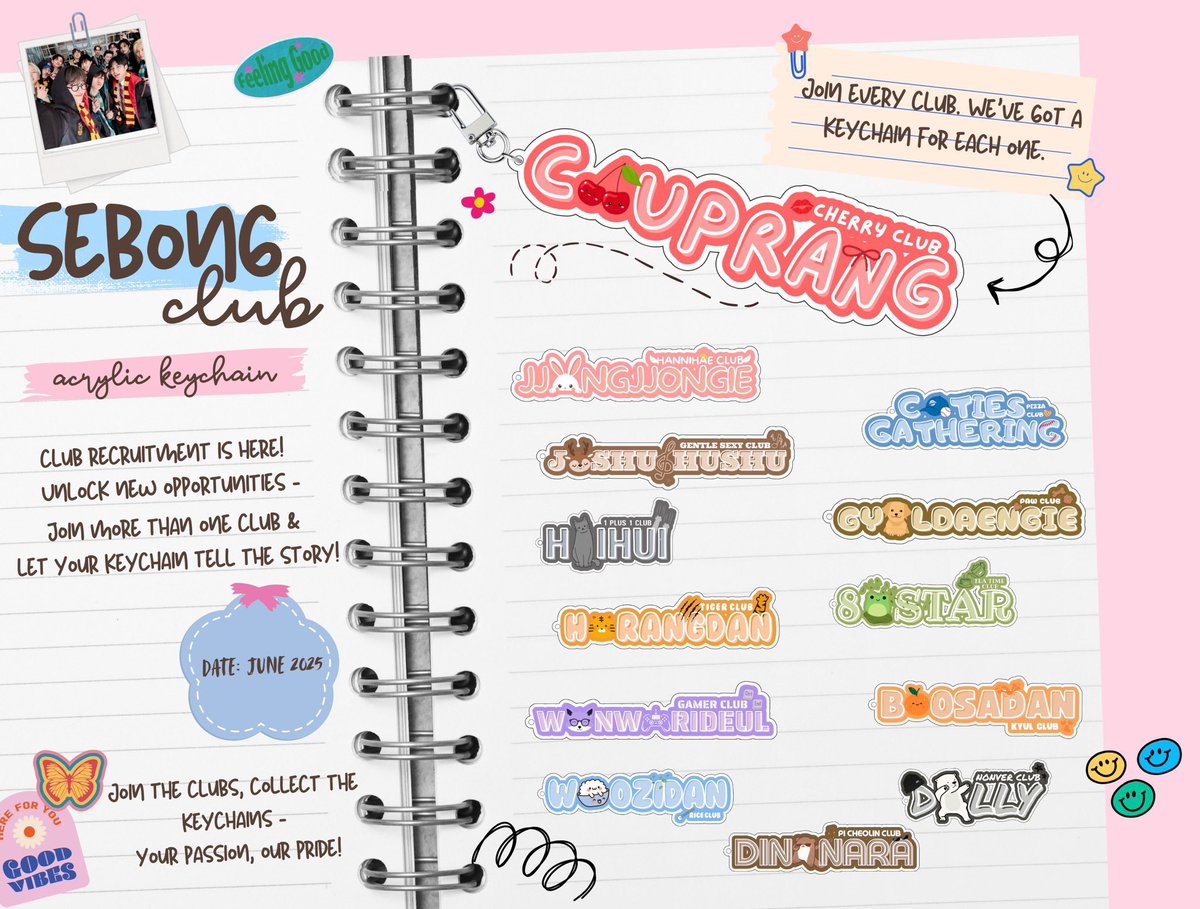 Feeling Good
SEBONG
club
acrylic keychain
CLUB RECRUITMENT IS HERE!
UNLOCK NEW OPPORTUNITIES -
JOIN MORE THAN ONE CLUB &
LET YOUR KEYCHAIN TELL THE STORY!
DATE: JUNE 2025
JOIN THE CLUBS, COLLECT THE
KEYCHAINS -
YOUR PASSION, OUR PRIDE!
HERE FOR YOU
GOOD
VIBES
JOIN EVERY CLUB. WE'VE GOT A
KEYCHAIN FOR EACH ONE.
COUPRANG
CHERRY CLUB
HANNIHAE CLUB
JJONGJJONGIE
COTIES
PIZZA
CLUB
GATHERING
GENTLE SEXY CLUB
JOSHU HUSHU
PAW CLUB
GYOLDAENGIE
1 PLUS 1 CLUB
HUIHUI
TEA TIME
CLUB
8 STAR
TIGER CLUB
HORANGDAN
GAMER CLUB
WONWARIDEUL
BOOSADAN
KYUL CLUB
WOOZIDAN
RICE CLUB
NONVER CLUB
DOLLY
PI CHEOLIN CLUB
DINONARA